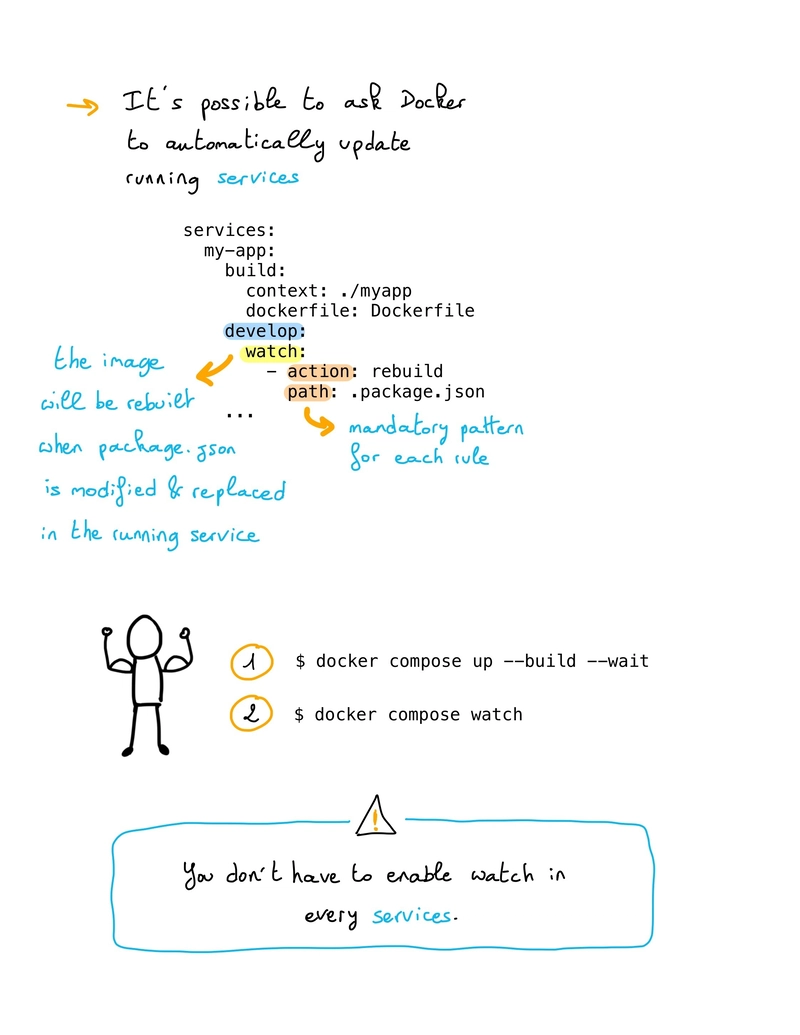 → It's possible to ask Docker
to automatically update
running services
services:
  my-app:
    build:
      context: ./myapp
      dockerfile: Dockerfile
    develop:
      watch:
        - action: rebuild
          path: .package.json
...
the image
will be rebuilt
when package.json
is modified & replaced
in the running service
mandatory pattern
for each rule
1 $ docker compose up --build --wait
2 $ docker compose watch
!
You don't have to enable watch in
every services.